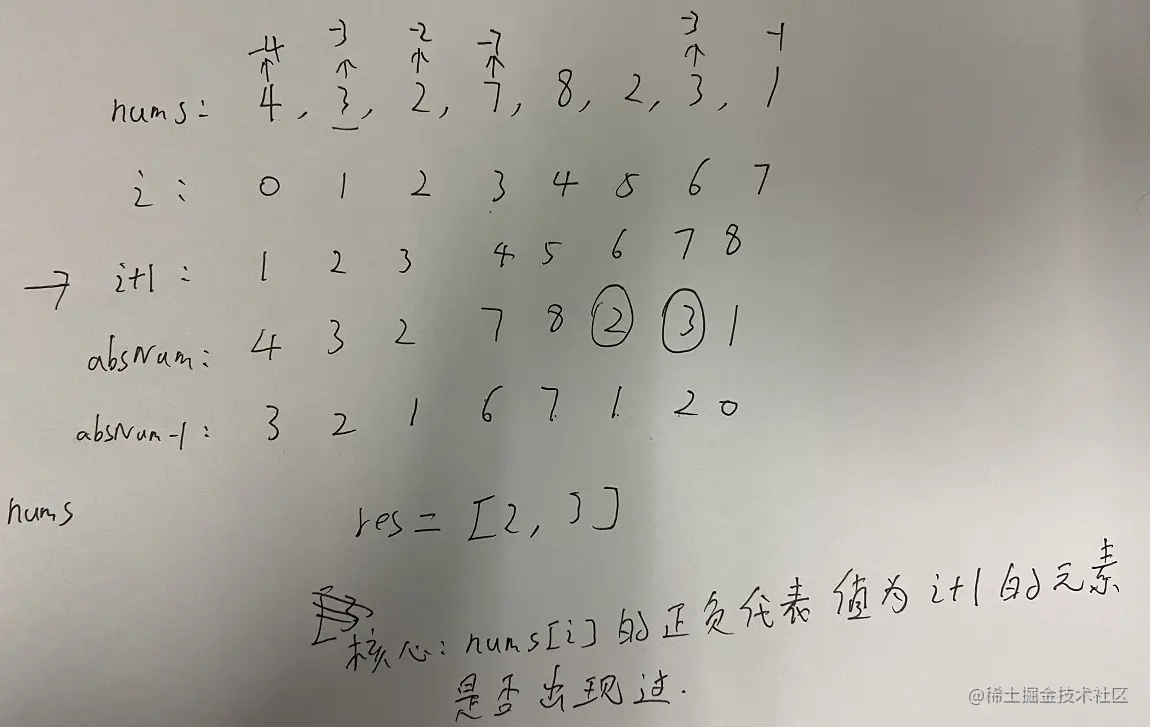 -4 -3 -2 -7 -3 -1
↑ ↑ ↑ ↑ ↑
nums: 4, 3, 2, 7, 8, 2, 3, 1
i: 0 1 2 3 4 5 6 7
→ i+1: 1 2 3 4 5 6 7 8
absNum: 4 3 2 7 8 2 3 1
absNum-1: 3 2 1 6 7 1 2 0
nums res = [2, 3]
核心: nums[i] 的正负代表 值为 i+1 的元素
是否出现过.
@稀土掘金技术社区